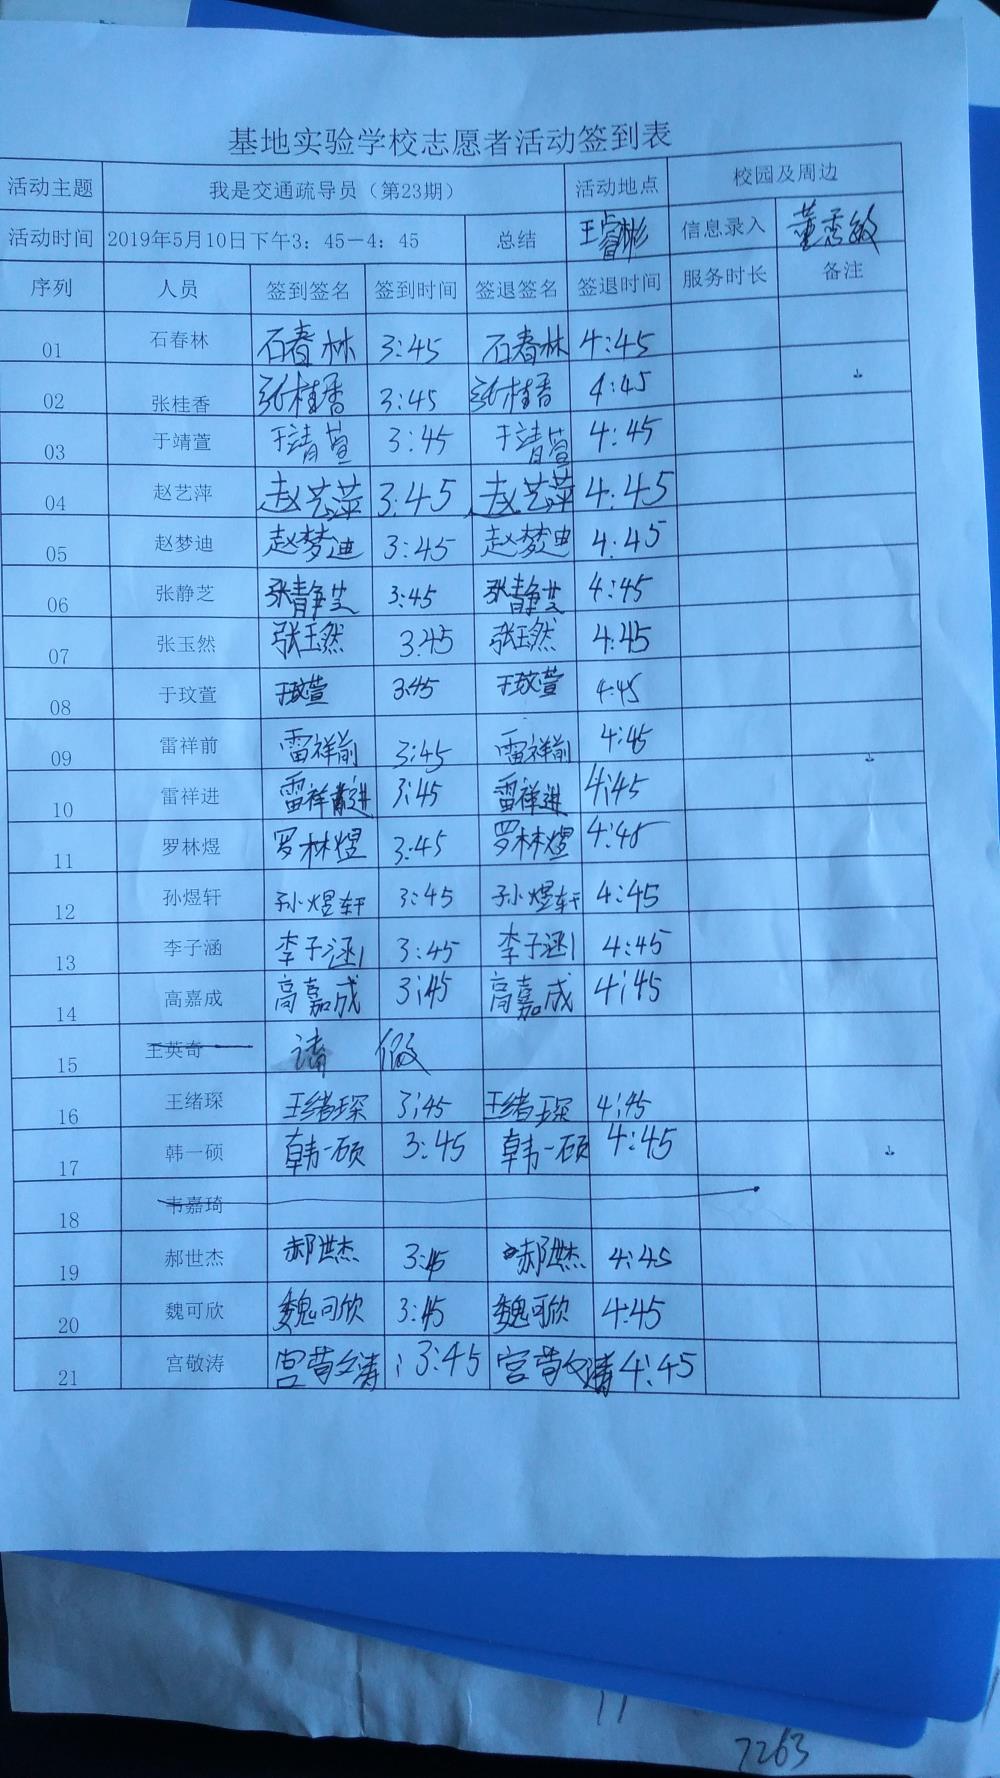 基地实验学校志愿者活动签到表
活动主题 我是交通疏导员（第23期） 活动地点 校园及周边
活动时间 2019年5月10日下午3：45—4：45 总结 王睿彬 信息录入 董秀敏
序列 人员 签到签名 签到时间 签退签名 签退时间 服务时长 备注
01 石春林 石春林 3:45 石春林 4:45
02 张桂香 张桂香 3:45 张桂香 4:45
03 于靖萱 于靖萱 3:45 于靖萱 4:45
04 赵艺萍 赵艺萍 3:45 赵艺萍 4:45
05 赵梦迪 赵梦迪 3:45 赵梦迪 4:45
06 张静芝 张静芝 3:45 张静芝 4:45
07 张玉然 张玉然 3:45 张玉然 4:45
08 于玟萱 于玟萱 3:45 于玟萱 4:45
09 雷祥前 雷祥前 3:45 雷祥前 4:45
10 雷祥进 雷祥进 3:45 雷祥进 4:45
11 罗林煜 罗林煜 3:45 罗林煜 4:45
12 孙煜轩 孙煜轩 3:45 孙煜轩 4:45
13 李子涵 李子涵 3:45 李子涵 4:45
14 高嘉成 高嘉成 3:45 高嘉成 4:45
15 王英奇 请 假
16 王绪琛 王绪琛 3:45 王绪琛 4:45
17 韩一硕 韩一硕 3:45 韩一硕 4:45
18 韦嘉琦
19 郝世杰 郝世杰 3:45 郝世杰 4:45
20 魏可欣 魏可欣 3:45 魏可欣 4:45
21 宫敬涛 宫敬涛 3:45 宫敬涛 4:45
11
7263